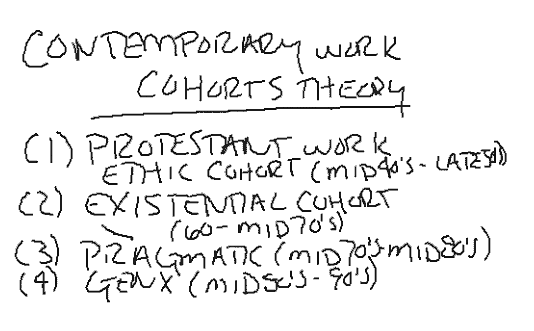 CONTEMPORARY WORK
COHORTS THEORY
(1) PROTESTANT WORK
ETHIC COHORT (MID40'S - LATE50'S)
(2) EXISTENTIAL COHORT
(60-MID70'S)
(3) PRAGMATIC (MID70'S-MID80'S)
(4) GENX (MID80'S-90'S)